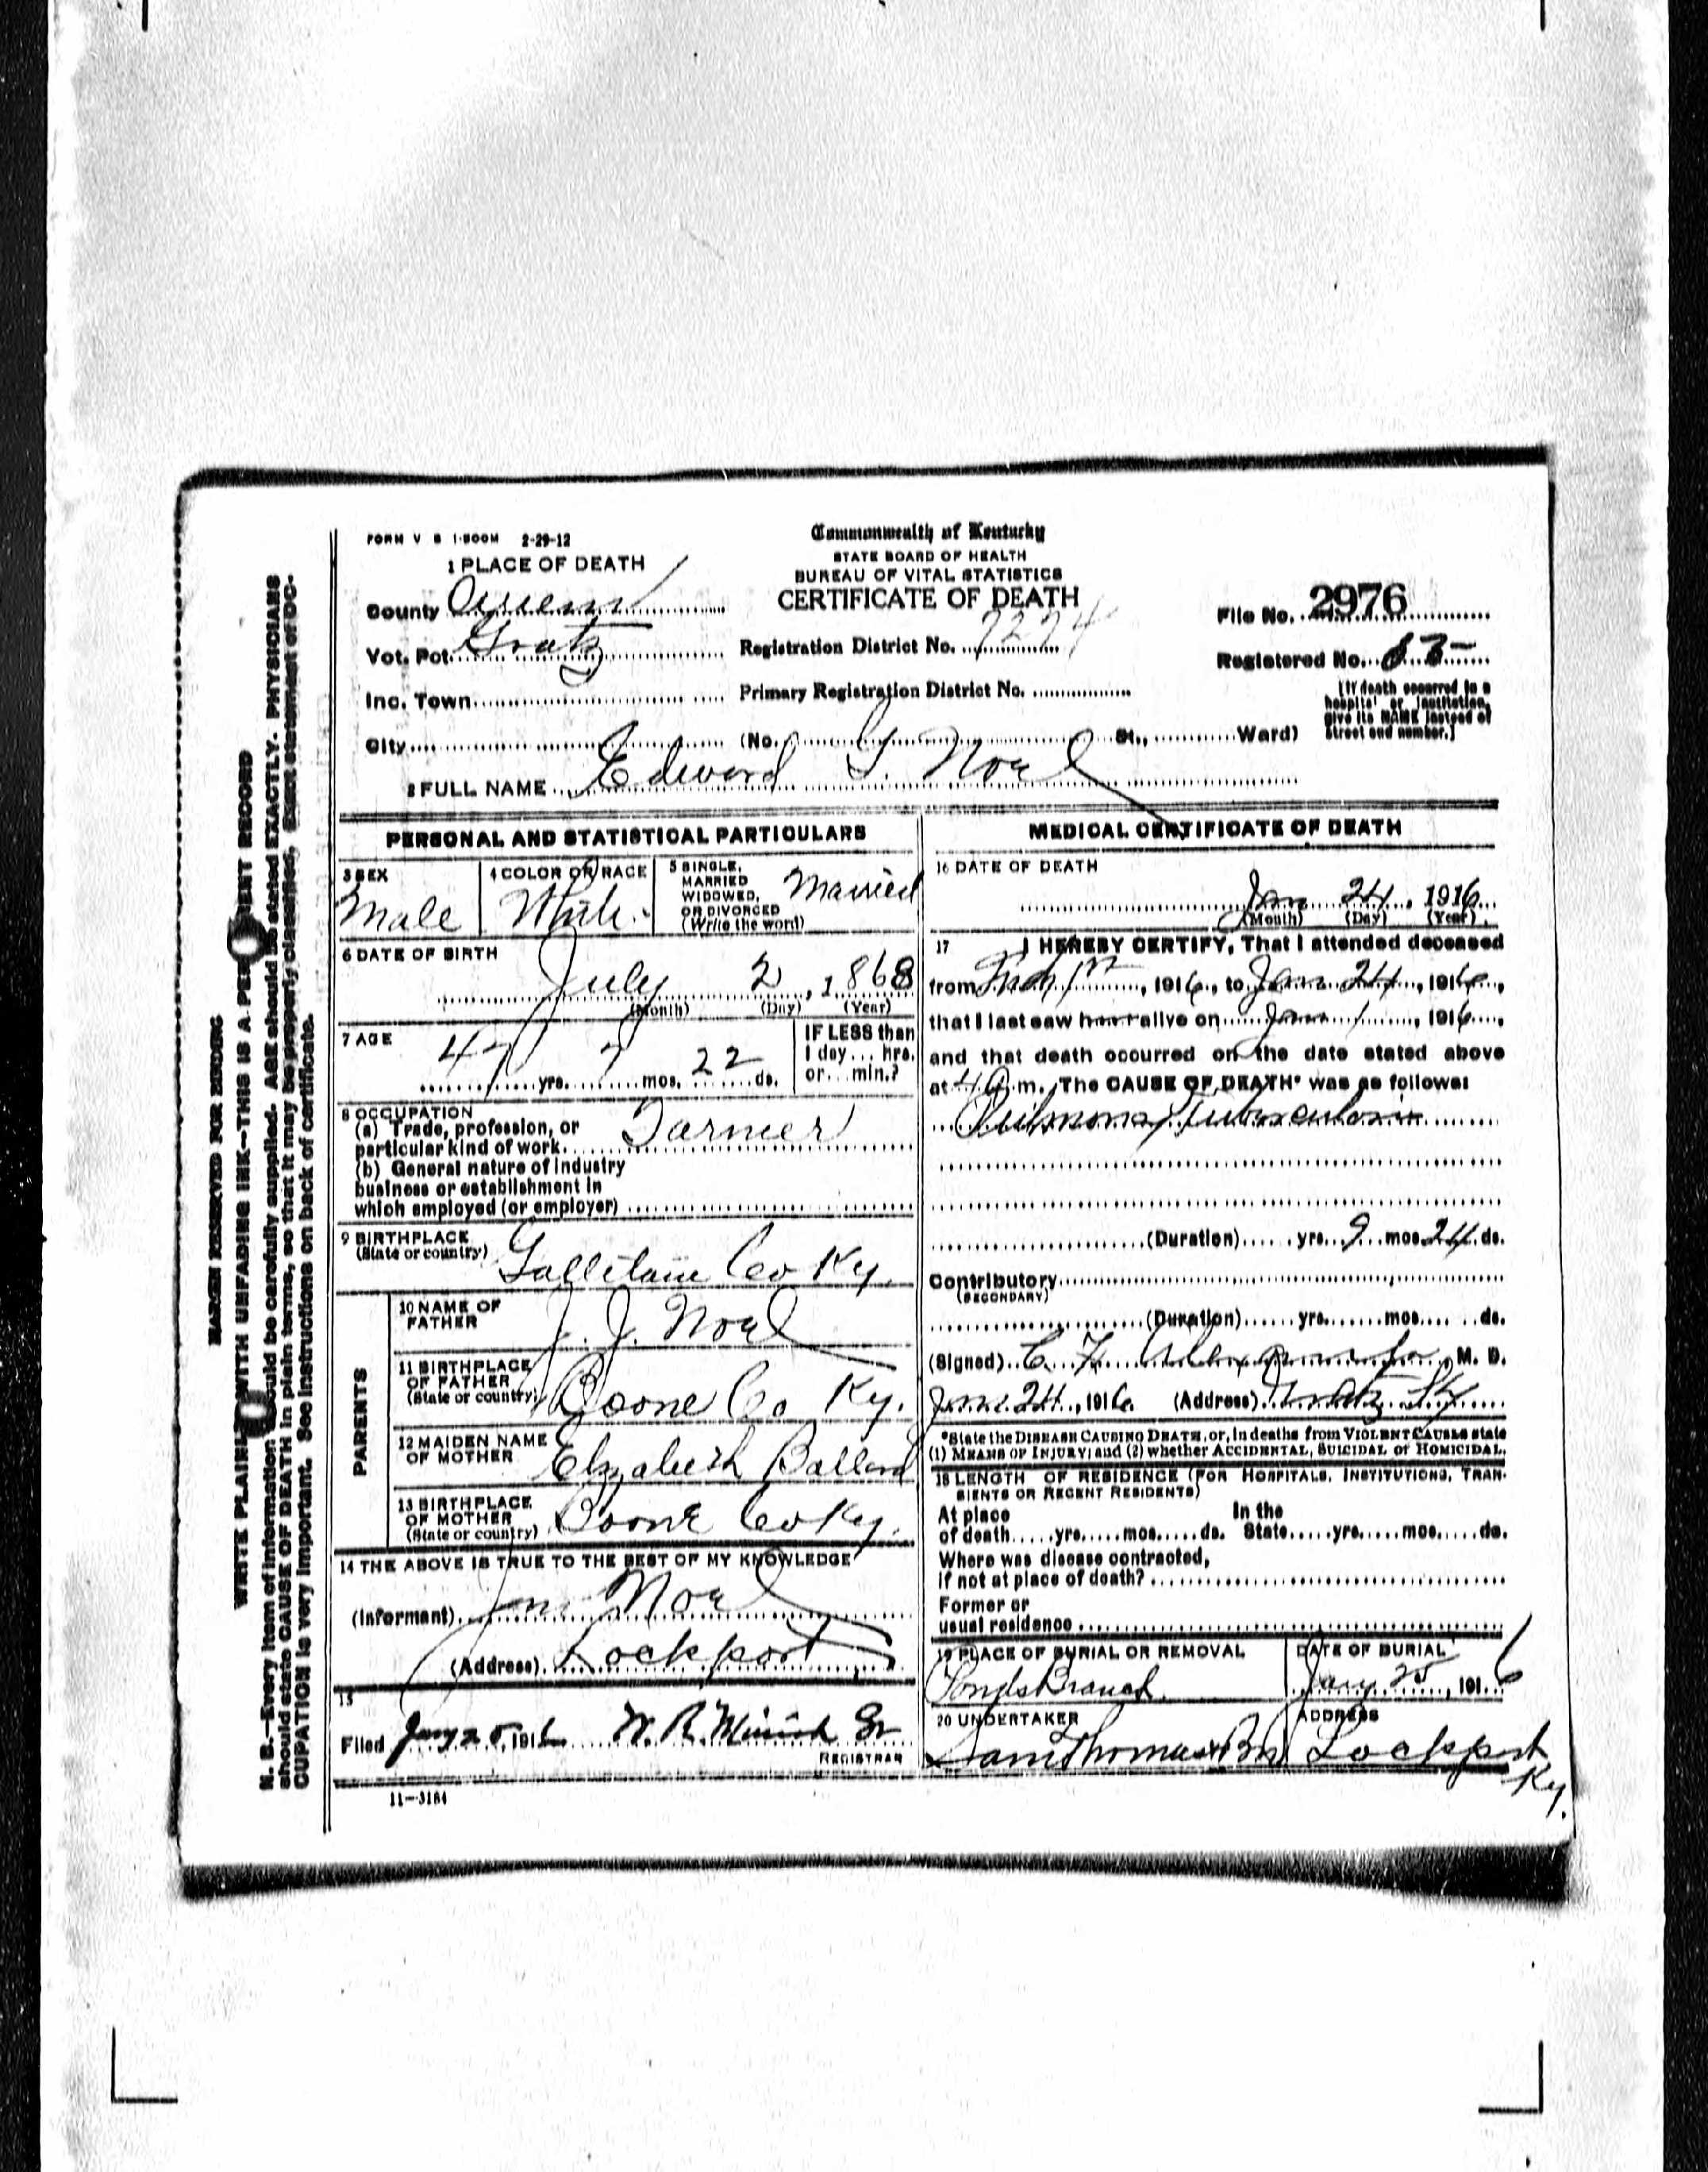 FORM V S 1-500M 2-29-12
Commonwealth of Kentucky
STATE BOARD OF HEALTH
BUREAU OF VITAL STATISTICS
CERTIFICATE OF DEATH
1 PLACE OF DEATH
County Owen
Vot. Pct. Gratz
Inc. Town
City
Registration District No. 7274
Primary Registration District No.
(No. St., Ward)
File No. 2976
Registered No.
[If death occurred in a
hospital or institution,
give its NAME instead of
street and number.]
2 FULL NAME Edward G. Noel
PERSONAL AND STATISTICAL PARTICULARS
3 SEX
Male
4 COLOR OR RACE
White
5 SINGLE,
MARRIED
WIDOWED,
OR DIVORCED
(Write the word)
Married
6 DATE OF BIRTH
July 2, 1868
(Month) (Day) (Year)
7 AGE
47 yrs. 7 mos. 22 ds.
IF LESS than
1 day... hrs.
or... min.?
8 OCCUPATION
(a) Trade, profession, or
particular kind of work. Farmer
(b) General nature of industry
business or establishment in
which employed (or employer)
9 BIRTHPLACE
(State or country)
Gallitain Co Ky.
PARENTS
10 NAME OF
FATHER
J. J. Noel
11 BIRTHPLACE
OF FATHER
(State or country)
Boone Co Ky.
12 MAIDEN NAME
OF MOTHER
Elizabeth Ballard
13 BIRTHPLACE
OF MOTHER
(State or country)
Boone Co Ky.
14 THE ABOVE IS TRUE TO THE BEST OF MY KNOWLEDGE
(Informant) Noel
(Address) Lockport
15
Filed Jany 25, 1916 W. R. Minish Sr
REGISTRAR
11-3184
MEDICAL CERTIFICATE OF DEATH
16 DATE OF DEATH
Jan 24, 1916
(Month) (Day) (Year)
17 I HEREBY CERTIFY, That I attended deceased
from 1st, 1916, to Jan 24, 1916,
that I last saw him alive on Jan 1, 1916,
and that death occurred on the date stated above
at 4 a. m. The CAUSE OF DEATH* was as follows:
Pulmonary Tuberculosis
(Duration) yrs. 9 mos. 24 ds.
Contributory
(SECONDARY)
(Duration) yrs. mos. ds.
(Signed) C. F. Alexander, M. D.
Jan 24, 1916 (Address) Gratz Ky
*State the DISEASE CAUSING DEATH, or, in deaths from VIOLENT CAUSES state
(1) MEANS OF INJURY; and (2) whether ACCIDENTAL, SUICIDAL or HOMICIDAL.
18 LENGTH OF RESIDENCE (FOR HOSPITALS, INSTITUTIONS, TRAN-
SIENTS OR RECENT RESIDENTS)
At place In the
of death yrs. mos. ds. State yrs. mos. ds.
Where was disease contracted,
if not at place of death?
Former or
usual residence
19 PLACE OF BURIAL OR REMOVAL
Branch
DATE OF BURIAL
Jany 25, 1916
20 UNDERTAKER
Sam Thomas & Bro
ADDRESS
Lockport
Ky.
MARGIN RESERVED FOR BINDING
WRITE PLAINLY WITH UNFADING INK—THIS IS A PERMANENT RECORD
N. B.—Every item of information should be carefully supplied. AGE should be stated EXACTLY. PHYSICIANS
should state CAUSE OF DEATH in plain terms, so that it may be properly classified. Exact statement of OC-
CUPATION is very important. See instructions on back of certificate.